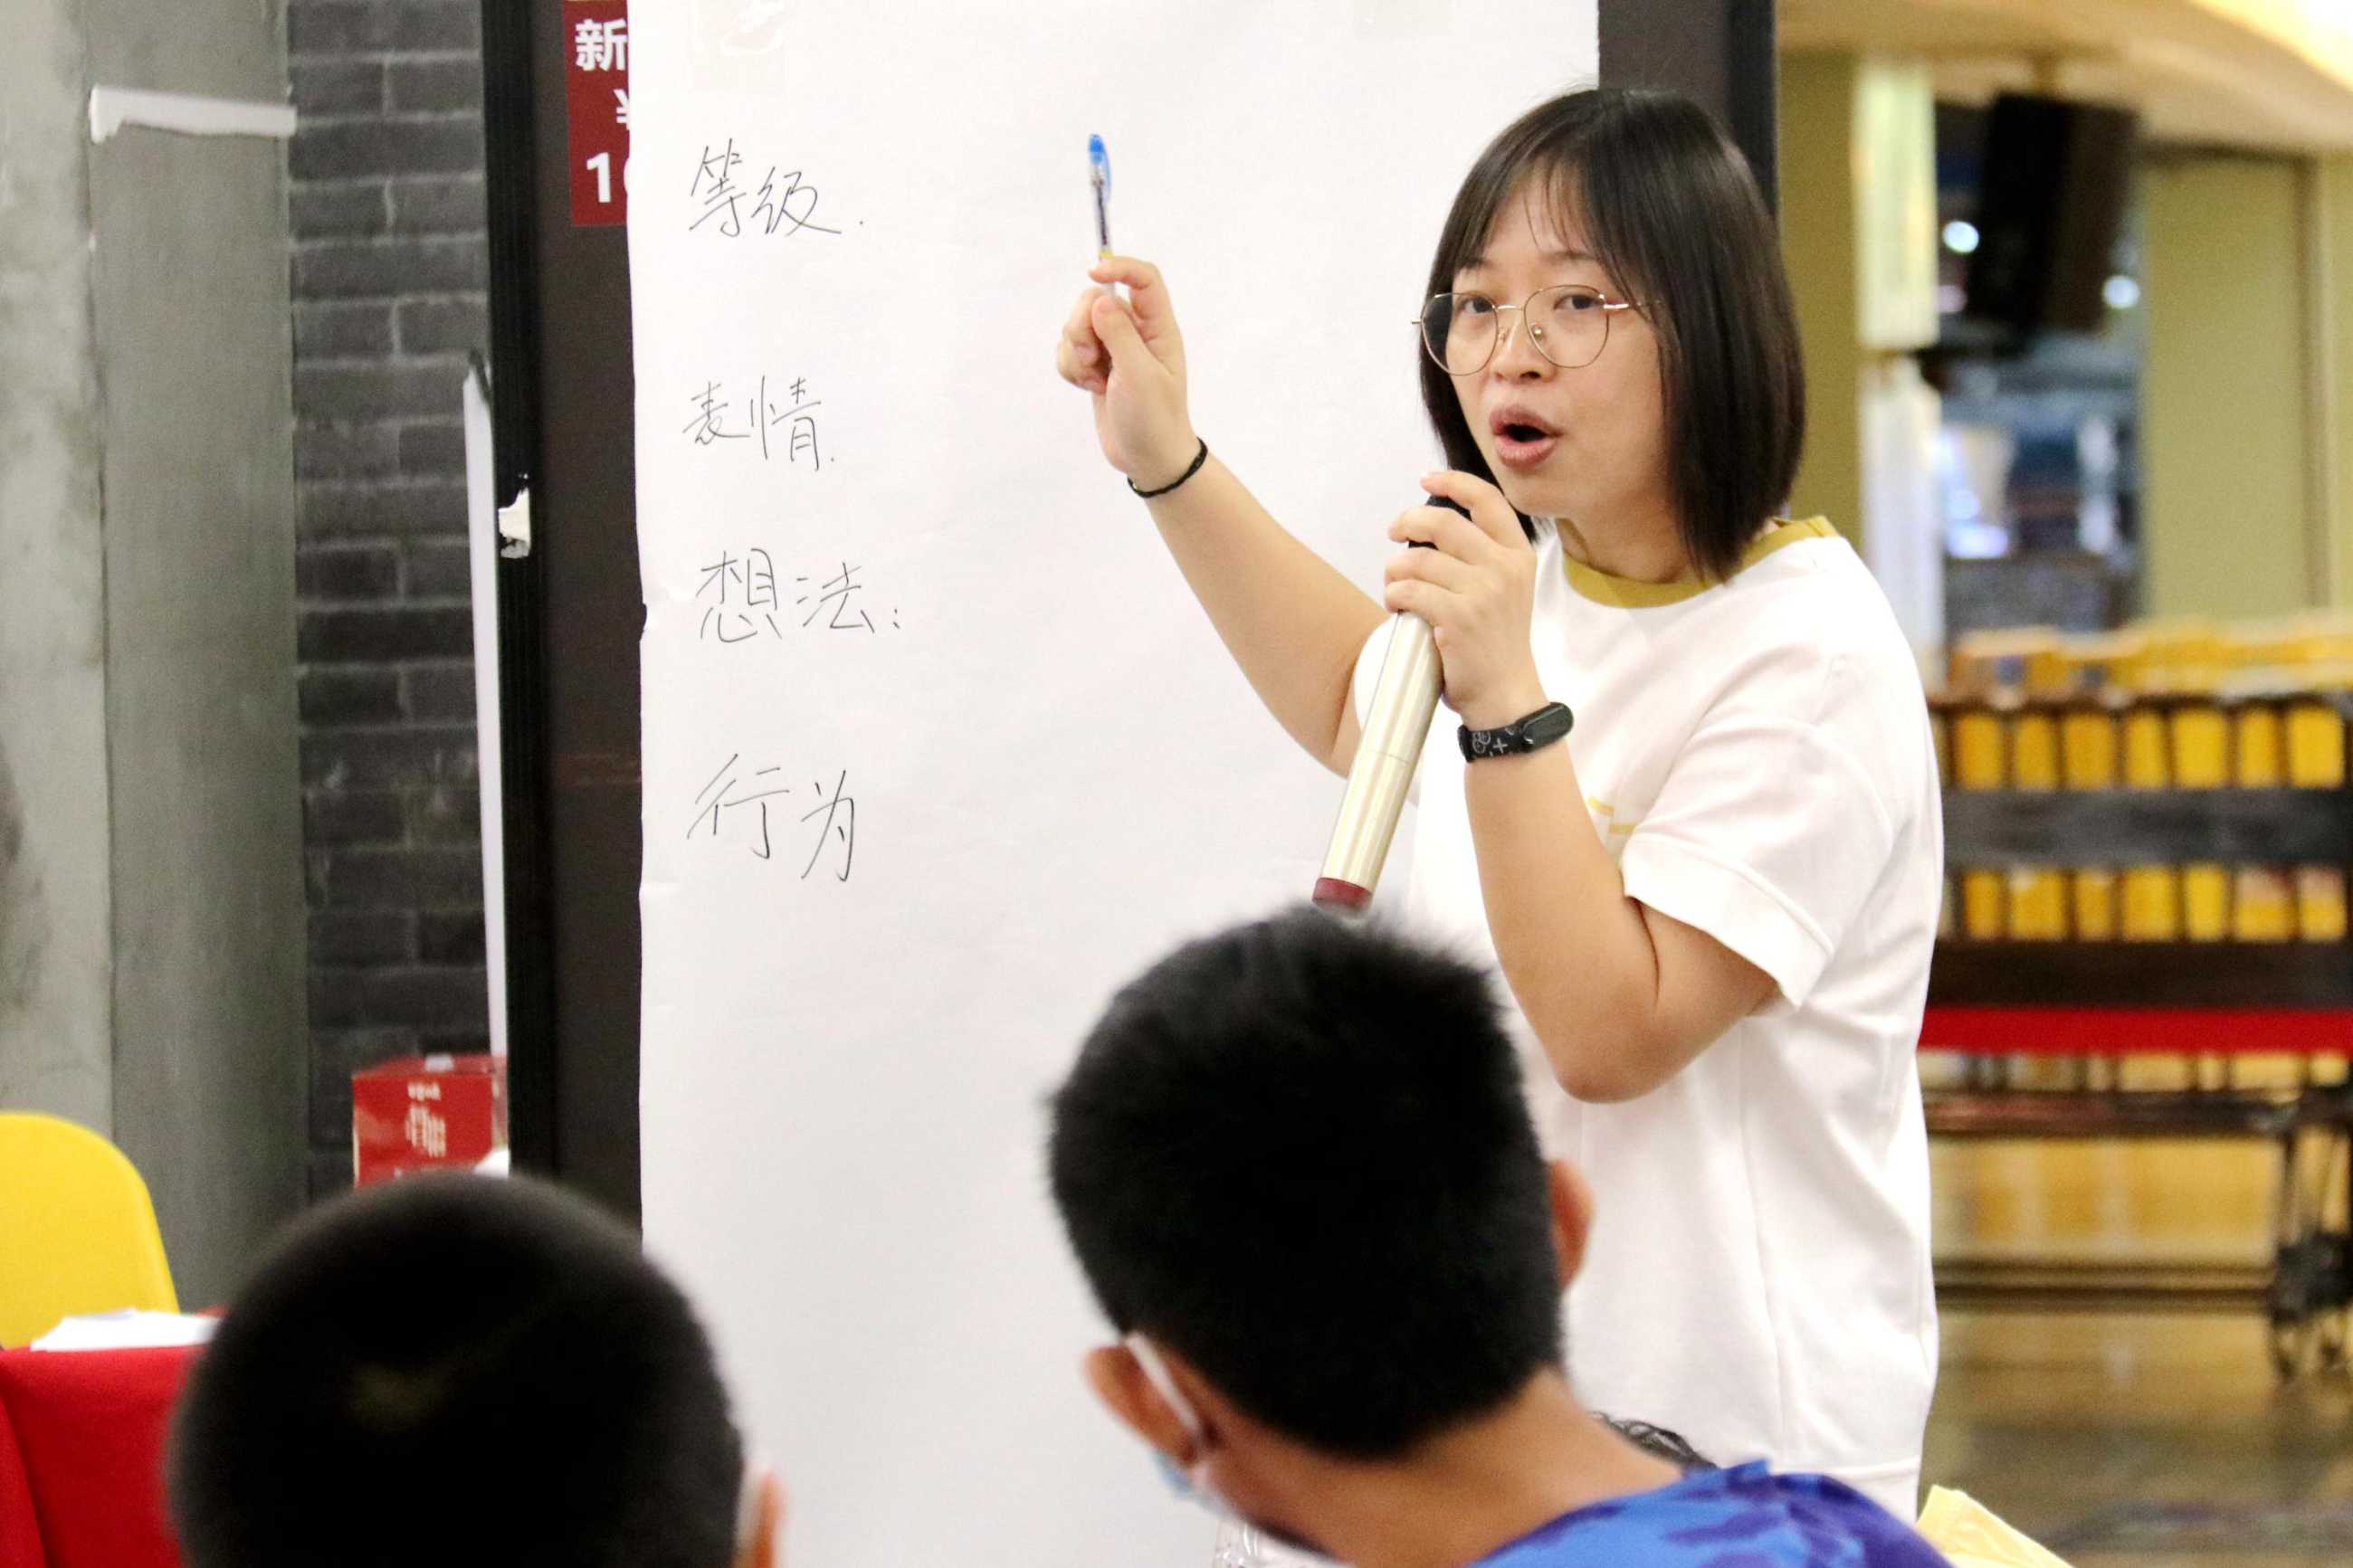 新
¥
等级.
表情.
想法:
行为